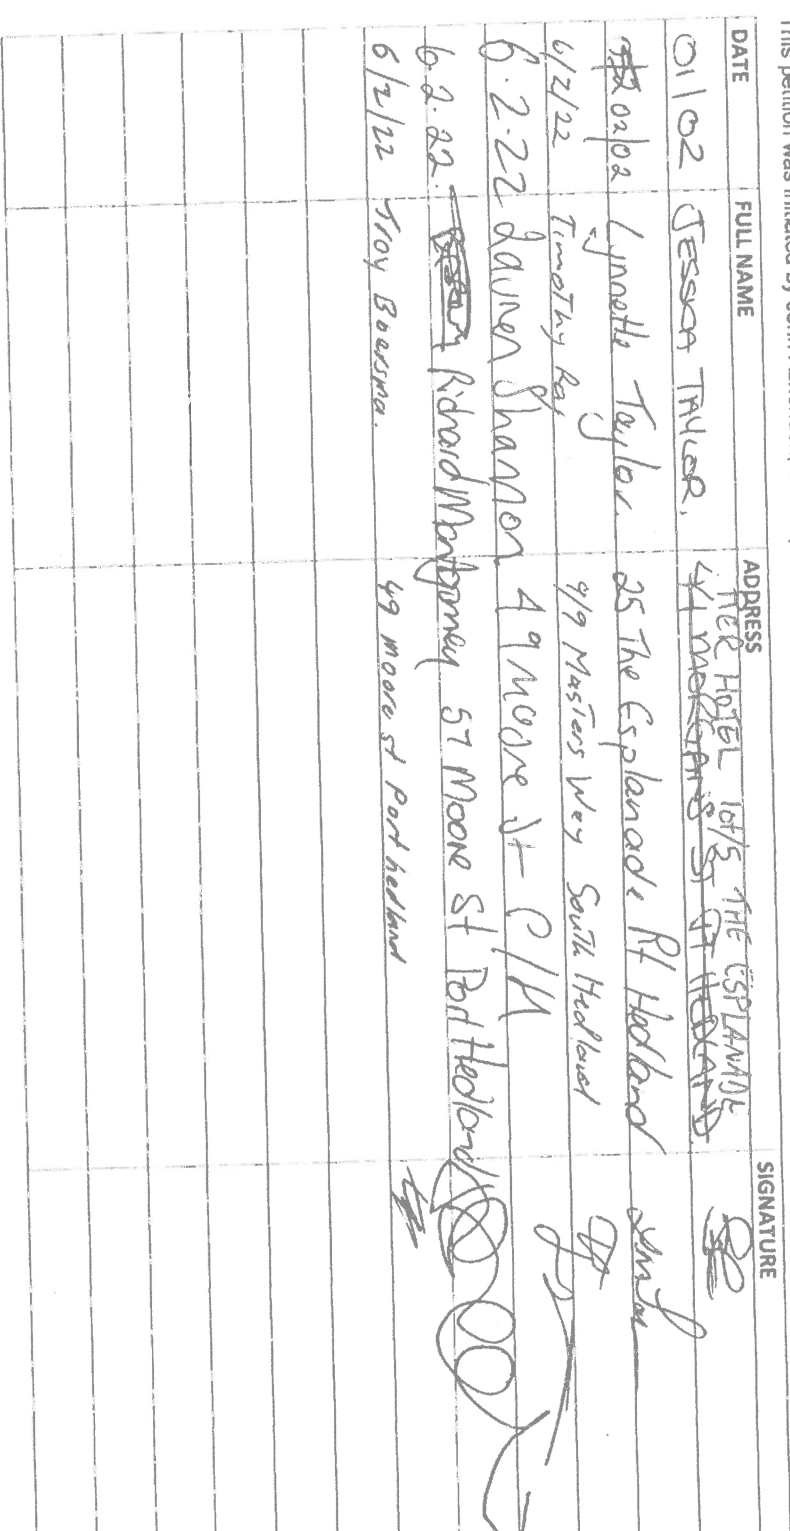 This petition was initiated by John
DATE FULL NAME ADDRESS SIGNATURE
PIER HOTEL lot/5 THE ESPLANADE
01/02 JESSICA TAYLOR. 4/1 MORGANS ST PT HEDLAND
02/02 Lynnette Taylor 25 The Esplanade Pt Hedland
6/2/22 Timothy Ray 9/9 Masters Way South Hedland
6.2.22 Lauren Shannon 49 Moore St P/H
6.2.22. Richard Montgomery 57 Moore St Port Hedland
6/2/22 Troy Boersma. 49 moore st Port hedland